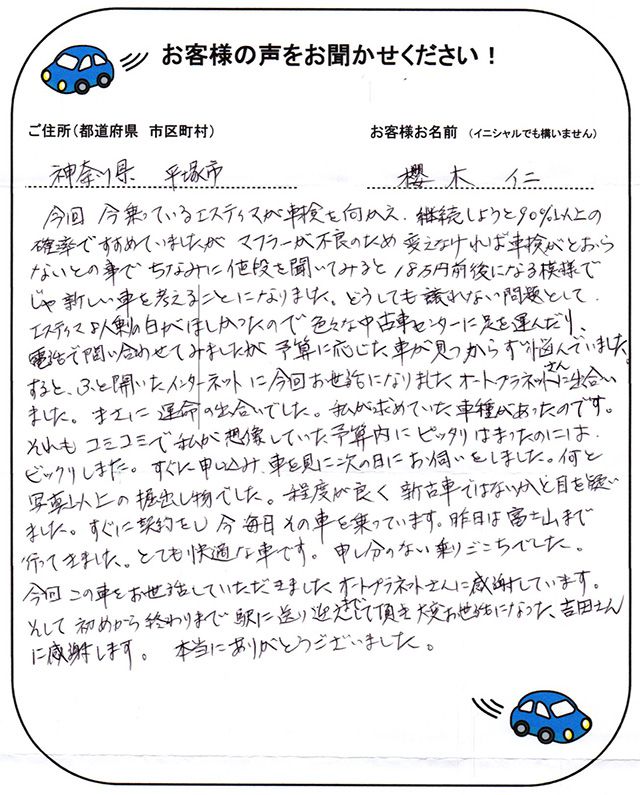 お客様の声をお聞かせください！
ご住所（都道府県 市区町村）　お客様お名前（イニシャルでも構いません）
神奈川県 平塚市　櫻木 イニ
今回 今乗っているエスティマが車検を向かえ、継続しようと90%以上の
確率ですすめていましたが マフラーが不良のため 変えなければ車検がとおら
ないとの事で ちなみに値段を聞いてみると 18万円前後になる模様で
じゃ新しい車を考えることになりました。どうしても譲れない問題として、
エスティマ 8人乗の白がほしかったので 色々な中古車センターに足を運んだり、
電話で問い合わせてみましたが 予算に応じた車が見つからず悩んでいました。
すると、ふと開いたインターネットに今回お世話になりましたオートプラネットさんに出合い
ました。まさに運命の出合いでした。私が求めていた車種があったのです。
それも コミコミで私が想像していた予算内にピッタリはまったのには、
ビックリしました。すぐに申し込み 車を見に次の日にお伺いをしました。何と
写真以上の掘出し物でした。程度が良く 新古車ではないかと目を疑い
ました。すぐに契約をし 今毎日その車を乗っています。昨日は富士山まで
行ってきました。とても快適な車です。申し分のない乗りごこちでした。
今回 この車をお世話していただきましたオートプラネットさんに感謝しています。
そして 初めから終わりまで 駅に送り迎えまでして頂き 大変お世話になった、吉田さん
に感謝します。 本当にありがとうございました。